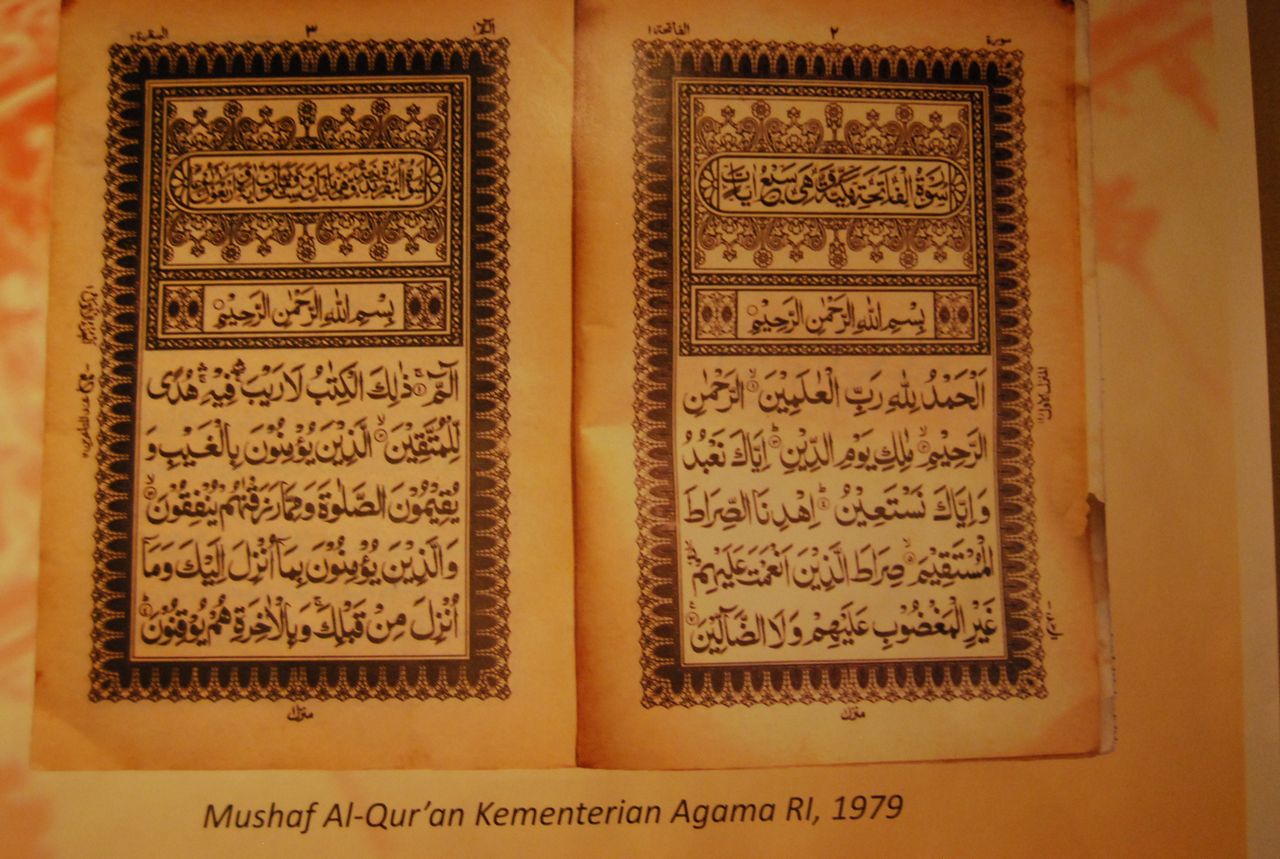 سورة
الفاتحة ١
٢
سُوْرَةُ الْفَاتِحَةِ مَكِّيَّةٌ وَّهِيَ سَبْعُ اٰيَاتٍ
بِسْمِ اللّٰهِ الرَّحْمٰنِ الرَّحِيْمِ ۝
اَلْحَمْدُ لِلّٰهِ رَبِّ الْعٰلَمِيْنَ ۙ﴿١﴾ الرَّحْمٰنِ
الرَّحِيْمِ ۙ﴿٢﴾ مٰلِكِ يَوْمِ الدِّيْنِ ۗ﴿٣﴾ اِيَّاكَ نَعْبُدُ
وَ اِيَّاكَ نَسْتَعِيْنُ ۗ﴿٤﴾ اِهْدِنَا الصِّرَاطَ
الْمُسْتَقِيْمَ ۙ﴿٥﴾ صِرَاطَ الَّذِيْنَ اَنْعَمْتَ عَلَيْهِمْ ۙ﴿٦﴾
غَيْرِ الْمَغْضُوْبِ عَلَيْهِمْ وَلَا الضَّآلِّيْنَ ﴿٧﴾
منزل
الٓمّٓ ١
٣
البقرة ٢
بِسْمِ اللّٰهِ الرَّحْمٰنِ الرَّحِيْمِ ۝
الٓمّٓ ۚ﴿١﴾ ذٰلِكَ الْكِتٰبُ لَا رَيْبَ ۛ فِيْهِ ۛ هُدًى
لِّلْمُتَّقِيْنَ ۙ﴿٢﴾ الَّذِيْنَ يُؤْمِنُوْنَ بِالْغَيْبِ وَ
يُقِيْمُوْنَ الصَّلٰوةَ وَمِمَّا رَزَقْنٰهُمْ يُنْفِقُوْنَ ۙ﴿٣﴾
وَالَّذِيْنَ يُؤْمِنُوْنَ بِمَآ اُنْزِلَ اِلَيْكَ وَمَآ
اُنْزِلَ مِنْ قَبْلِكَ ۚ وَبِالْاٰخِرَةِ هُمْ يُوْقِنُوْنَ ۗ﴿٤﴾
منزل
Mushaf Al-Qur'an Kementerian Agama RI, 1979